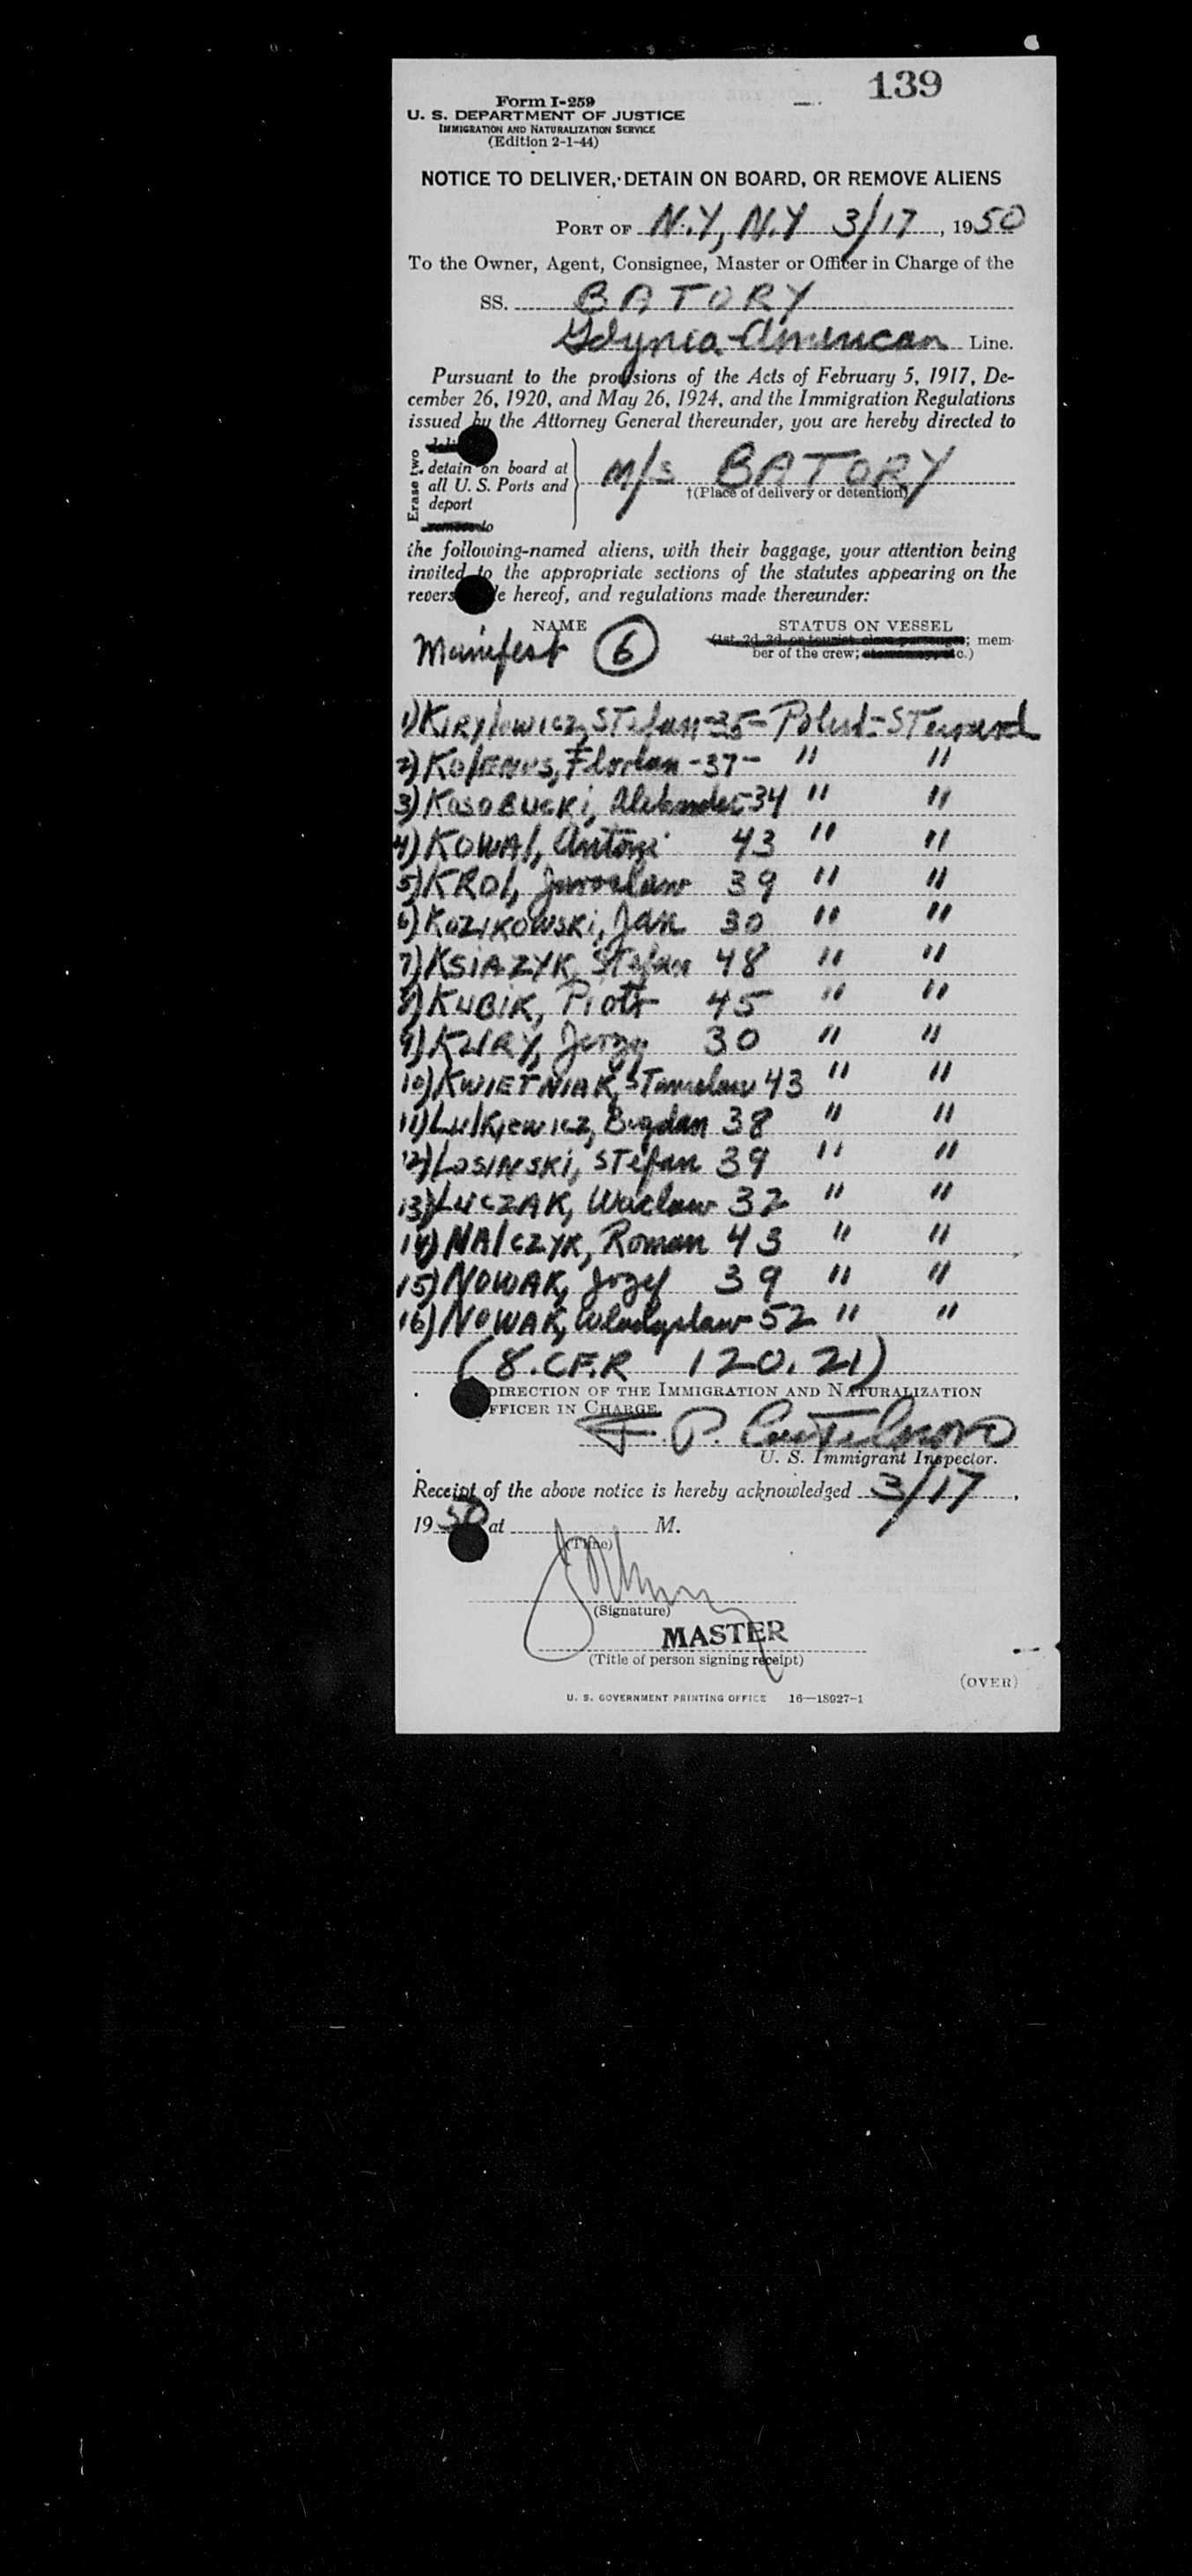 139
Form I-259
U. S. DEPARTMENT OF JUSTICE
IMMIGRATION AND NATURALIZATION SERVICE
(Edition 2-1-44)
NOTICE TO DELIVER, DETAIN ON BOARD, OR REMOVE ALIENS
PORT OF N.Y, N.Y 3/17, 1950
To the Owner, Agent, Consignee, Master or Officer in Charge of the
SS. BATORY
Gdynia-American Line.
Pursuant to the provisions of the Acts of February 5, 1917, De-
cember 26, 1920, and May 26, 1924, and the Immigration Regulations
issued by the Attorney General thereunder, you are hereby directed to
Erase two
detain on board at
all U. S. Ports and
deport
M/S BATORY
†(Place of delivery or detention)
the following-named aliens, with their baggage, your attention being
invited to the appropriate sections of the statutes appearing on the
hereof, and regulations made thereunder:
NAME STATUS ON VESSEL
(1st, 2d, 3d, or tourist class passenger; mem-
ber of the crew; c.)
Manifest 6
1) KIRYlowicz, STefan-35-Polish-STeward
2) Florian -37- " "
3) KOSOBUCKi, Aleksander-34 " "
4) KOWAl, Antoni 43 " "
5) KROl, Jaroslaw 39 " "
6) KOZIKOWSKi, Jan 30 " "
7) KSIAZYK, Stefan 48 " "
8) KUBIK, Piotr 45 " "
9) KURY, Jerzy 30 " "
10) KWIETNIAK, STanislaw 43 " "
11) Bogdan 38 " "
12) LOSINSKi, STefan 39 " "
13) LUCZAK, Waclaw 32 " "
14) NAlCZYK, Roman 43 " "
15) NOWAK, Jozef 39 " "
16) NOWAK, Wladyslaw 52 " "
(8.CF.R 120.21)
DIRECTION OF THE IMMIGRATION AND NATURALIZATION
FFICER IN CHARGE
F. P.
U. S. Immigrant Inspector.
Receipt of the above notice is hereby acknowledged 3/17,
1950 at M.
(Time)
(Signature)
MASTER
(Title of person signing receipt)
(OVER)
U. S. GOVERNMENT PRINTING OFFICE 16—18027-1